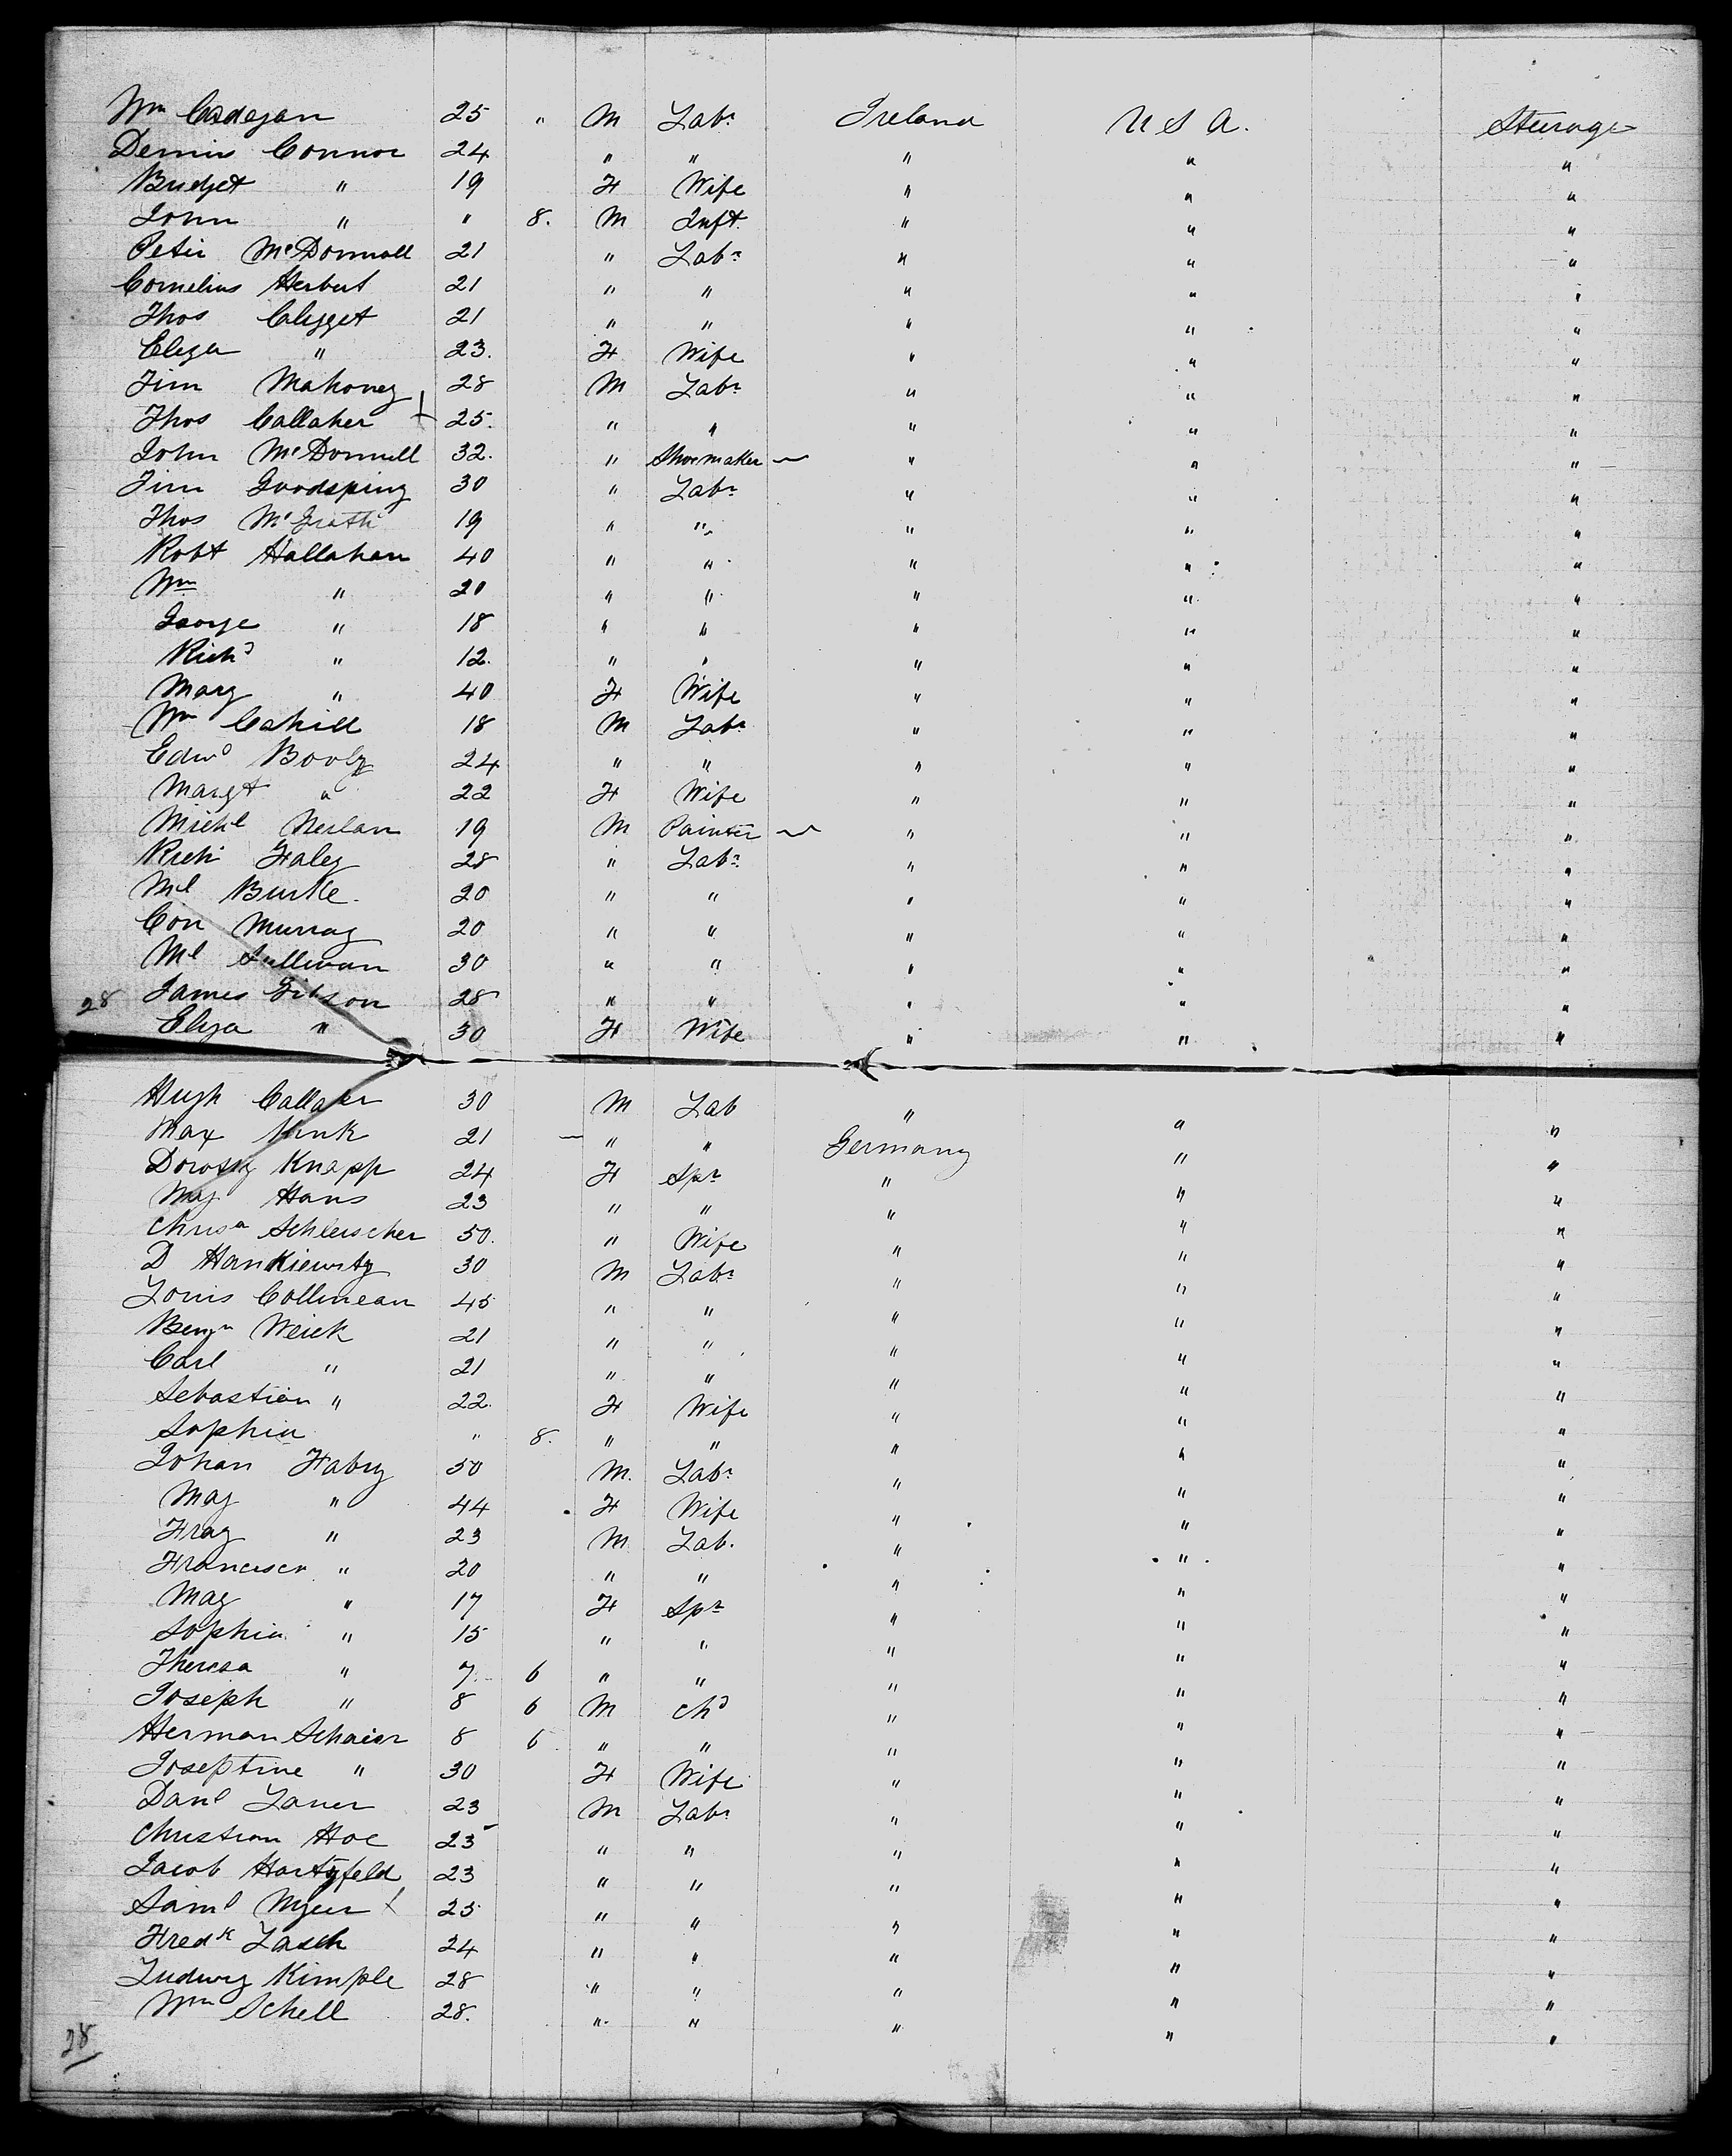 Wm Cadagan 25 " M Labr Ireland U S A. Steerage
Dennis Connor 24 " " " " "
Bridget " 19 F Wife " " "
John " " 8. M Inft. " " "
Peter McDonnall 21 " Labr " " "
Cornelius Herbert 21 " " " " "
Thos Clegget 21 " " " " "
Eliza " 23. F Wife " " "
Jim Mahoney 28 M Labr " " "
Thos Callaher 25. " " " " "
John McDonnell 32. " Shoemaker " " "
Jim Goodspring 30 " Labr " " "
Thos McGrath 19 " " " " "
Robt Hallahan 40 " " " " "
Wm " 20 " " " " "
George " 18 " " " " "
Richd " 12. " " " " "
Mary " 40 F Wife " " "
Wm Cahill 18 M Labr " " "
Edwd Booly 24 " " " " "
Margt " 22 F Wife " " "
Michl Neslan 19 M Painter " " "
Rich Haley 28 " Labr " " "
Ml Burke. 20 " " " " "
Con Murray 20 " " " " "
Ml Sullivan 30 " " " " "
28 James Gibson 28 " " " " "
Eliza " 30 F Wife " " "
Hugh Callaher 30 M Lab " " "
Max 21 " " Germany " "
Dorothy Knapp 24 F Spr " " "
May Hans 23 " " " " "
Chrisa Schleischer 50. " Wife " " "
D Hankiewitz 30 M Labr " " "
Louis Collinean 45 " " " " "
Benjn Weick 21 " " " " "
Carl " 21 " " " " "
Sebastian " 22. F Wife " " "
Sophia " 8. " " " " "
Johan Fabry 50 M. Labr " " "
Mag " 44 F Wife " " "
Fray " 23 M Lab. " " "
Francisca " 20 " " " " "
Mag " 17 F Spr " " "
Sophia " 15 " " " " "
Theresa " 7 6 " " " " "
Joseph " 8 6 M chd " " "
Herman Schaier 8 6 " " " " "
Joseptine " 30 F Wife " " "
Danl Laner 23 M Labr " " "
Christian Hoe 23 " " " " "
Jacob Hartzfeld 23 " " " " "
Saml Myer 25 " " " " "
Fredk Lasch 24 " " " " "
Ludwig Kimple 28 " " " " "
Wm Schell 28. " " " " "
28